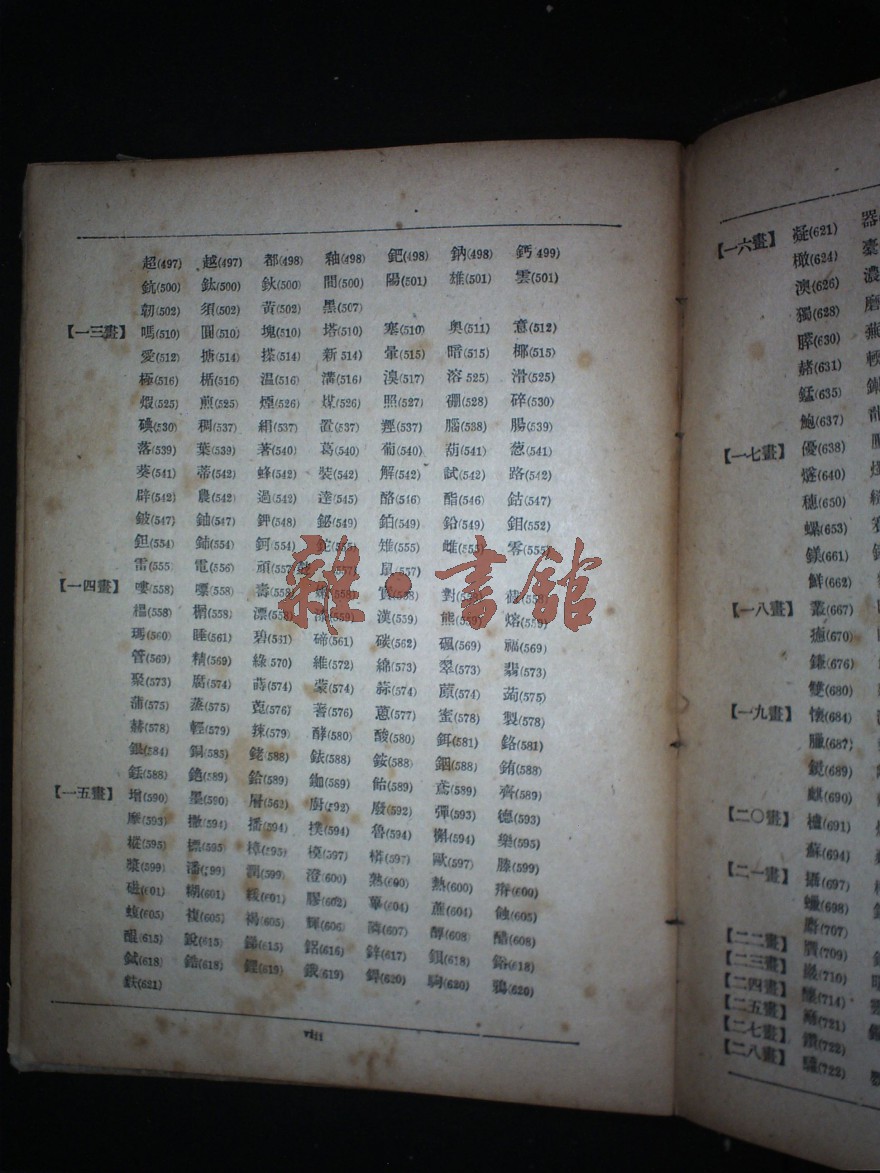 超(497) 越(497) 都(498) 釉(498) 鈀(498) 鈉(498) 鈣(499)
鈧(500) 鈦(500) 鈥(500) 間(500) 陽(501) 雄(501) 雲(501)
韌(502) 須(502) 黃(502) 黑(507)
【一三畫】 嗎(510) 圓(510) 塊(510) 塔(510) 塞(510) 奧(511) 意(512)
愛(512) 搪(514) 搽(514) 新(514) 暈(515) 暗(515) 椰(515)
極(516) 楯(516) 溫(516) 溝(516) 溴(517) 溶(525) 滑(525)
煅(525) 煎(525) 煙(526) 煤(526) 照(527) 硼(528) 碎(530)
碘(530) 稠(537) 絹(537) 置(537) 腦(538) 腸(539)
落(539) 葉(539) 著(540) 葛(540) 葡(540) 葫(541) 葱(541)
葵(541) 蒂(542) 蜂(542) 裝(542) 解(542) 試(542) 路(542)
辟(542) 農(542) 過(542) 達(545) 酪(546) 酯(546) 鈷(547)
鈹(547) 鈾(547) 鉀(548) 鉍(549) 鉑(549) 鉛(549) 鉬(552)
鉭(554) 鈰(554) 鈳(554) 鉈(555) 雉(555) 雌(555) 零(555)
雷(555) 電(556) 頑(557) 鼠(557)
【一四畫】 嘜(558) 嘌(558) 壽(558) 實(558) 對(558)
榲(558) 榍(558) 漂(558) 漆(559) 漢(559) 熊(559) 熔(559)
瑪(560) 睡(561) 碧(561) 碲(561) 碳(562) 碸(569) 福(569)
管(569) 精(569) 綠(570) 維(572) 綿(573) 翠(573) 翡(573)
聚(573) 腐(574) 蒔(574) 蒙(574) 蒜(574) 蒟(575)
蒲(575) 蒸(575) 蓖(576) 蓍(576) 蜜(578) 製(578)
赫(578) 輕(579) 辣(579) 酵(580) 酸(580) 鉺(581) 鉻(581)
銀(584) 銅(585) 銠(588) 銥(588) 銨(588) 銦(588) 銪(588)
銩(588) 鉿(589) 銣(589) 飴(589) 鳶(589) 齊(589)
【一五畫】 增(590) 墨(590) 厨(592) 廢(592) 彈(593) 德(593)
摩(593) 撒(594) 播(594) 撲(594) 魯(594) 槲(594) 樂(595)
樅(595) 標(595) 樟(595) 模(597) 歐(597) 膝(599)
漿(599) 潘(599) 潤(599) 澄(600) 熱(600)
磁(601) 糊(601) 緩(601) 膠(602) 蔗(604) 蝕(605)
複(605) 褐(605) 輝(606) 醇(608) 醋(608)
醌(615) 銳(615) 銻(615) 鋁(616) 鋅(617) 鋇(618) 鋊(618)
鋱(618) 鋯(618) 鋰(619) 鋨(619) 駒(620) 鴉(620)
viii
【一六畫】 凝(621) 器
橄(624) 臺
澳(626) 濃
獨(628) 磨
赭(631)
錳(635)
鮑(637) 龍
【一七畫】 優(638)
燧(640)
穗(650)
螺(653)
鎂(661)
鮮(662)
【一八畫】 叢(667)
鎵(676)
雙(680)
【一九畫】 懷(684)
臘(687)
麒(690)
【二〇畫】 爐(691)
蘇(694)
【二一畫】 攝(697)
蠟(698)
麝(707)
【二二畫】
【二三畫】
【二四畫】
【二五畫】
【二七畫】 鑽(722)
【二八畫】
雜·書館